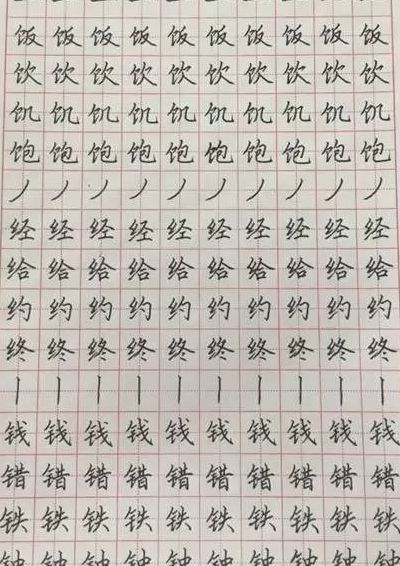 饭饭饭饭饭饭饭饭饭饭
饮饮饮饮饮饮饮饮饮饮
饥饥饥饥饥饥饥饥饥饥
饱饱饱饱饱饱饱饱饱饱
丿丿丿丿丿丿丿丿丿丿
经经经经经经经经经经
给给给给给给给给给给
约约约约约约约约约约
终终终终终终终终终终
丨丨丨丨丨丨丨丨丨丨
钱钱钱钱钱钱钱钱钱钱
错错错错错错错错错错
铁铁铁铁铁铁铁铁铁铁
钟钟钟钟钟钟钟钟钟钟